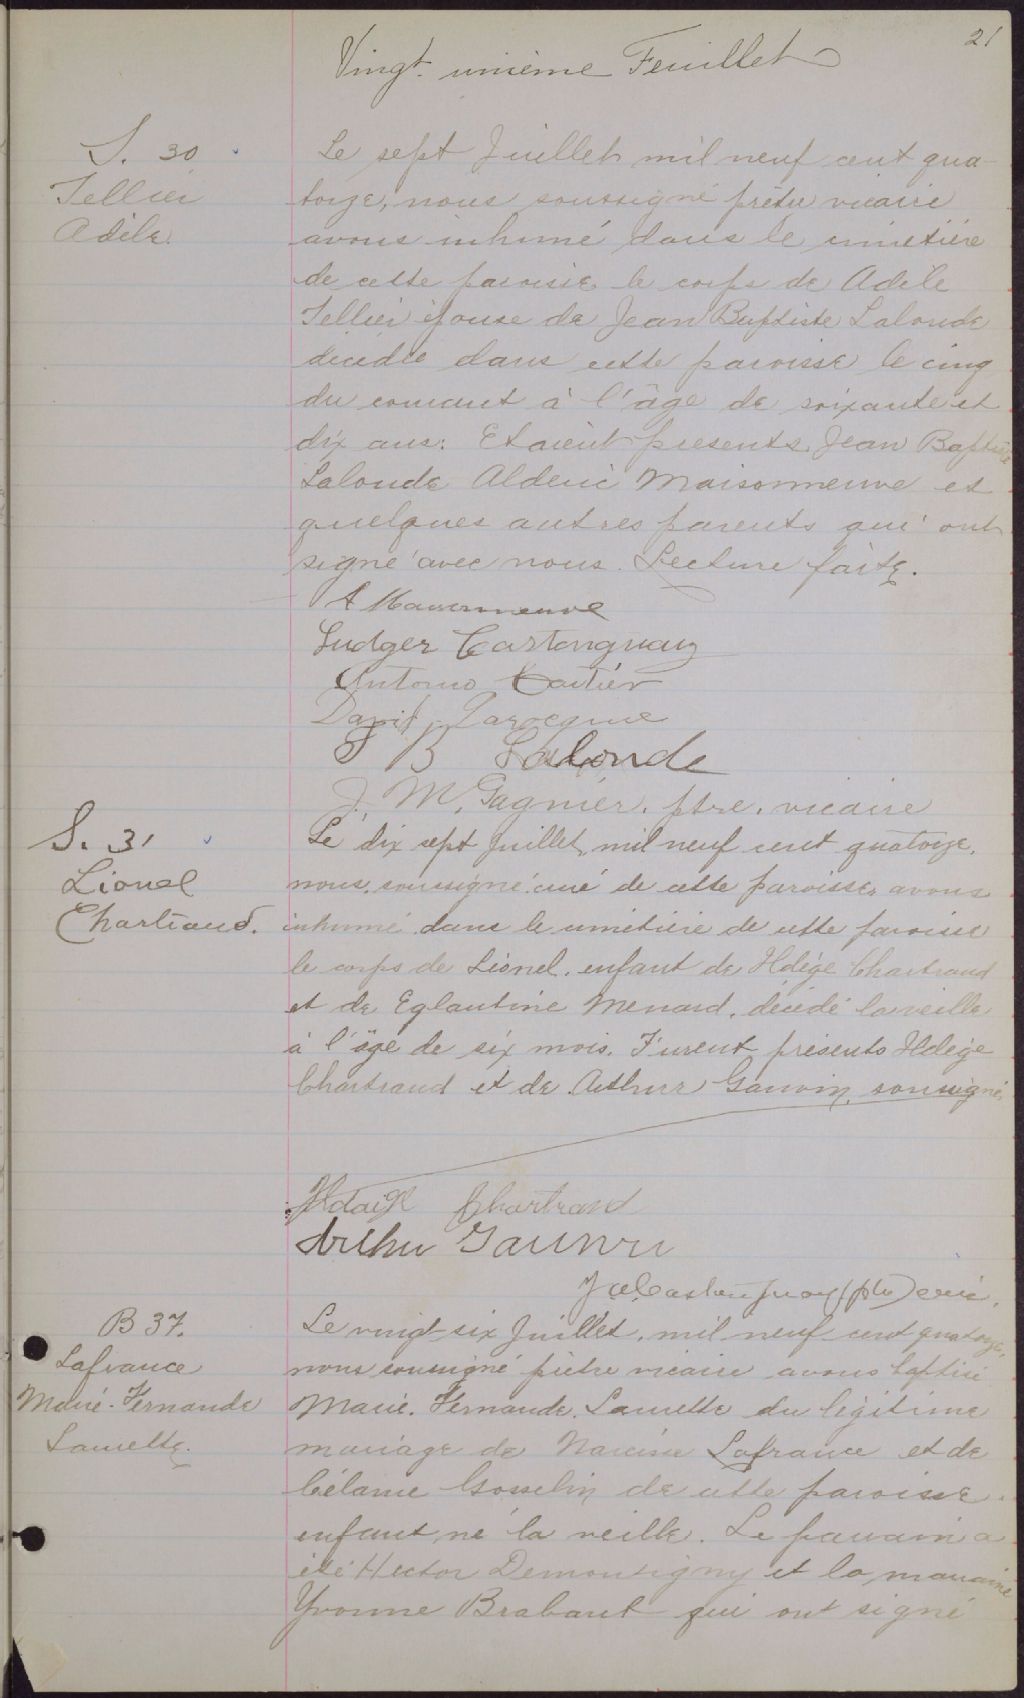 21
Vingt-unième Feuillet
S. 30
Tellier
Adèle.
Le sept Juillet mil neuf cent qua-
torze, nous soussigné prêtre vicaire
avons inhumé dans le cimetière
de cette paroisse le corps de Adèle
Tellier épouse de Jean Baptiste Lalonde
décédée dans cette paroisse le cinq
du courant à l'âge de soixante et
dix ans. Etaient présents Jean Baptiste
Lalonde Alderic Maisonneuve et
quelques autres parents qui ont
signé avec nous. Lecture faite.
A Maisonneuve
Ludger Castonguay
Antonio Cartier
David Larocque
J B Lalonde
J. M. Gagnier. ptre. vicaire
S. 31
Lionel
Chartrand.
Le dix sept Juillet, mil neuf cent quatorze,
nous, soussigné curé de cette paroisse, avons
inhumé dans le cimetière de cette paroisse
le corps de Lionel. enfant de Hdège Chartrand
et de Eglantine Menard, décédé la veille
à l'âge de six mois. Furent présents Hdège
Chartrand et de Arthur Gauvin, soussignés.
Chartrand
Arthur Gauvin
Castonguay (ptre) curé.
B 37.
Lafrance
Marie-Fernande
Laurette.
Le vingt-six Juillet, mil neuf cent quatorze,
nous soussigné prêtre vicaire avons baptisé
Marie. Fernande. Laurette du légitime
mariage de Narcisse Lafrance et de
Célanie Gosselin de cette paroisse.
enfant né la veille. Le parrain a
été Hector Demontigny et la marraine
Yvonne Brabant qui ont signé